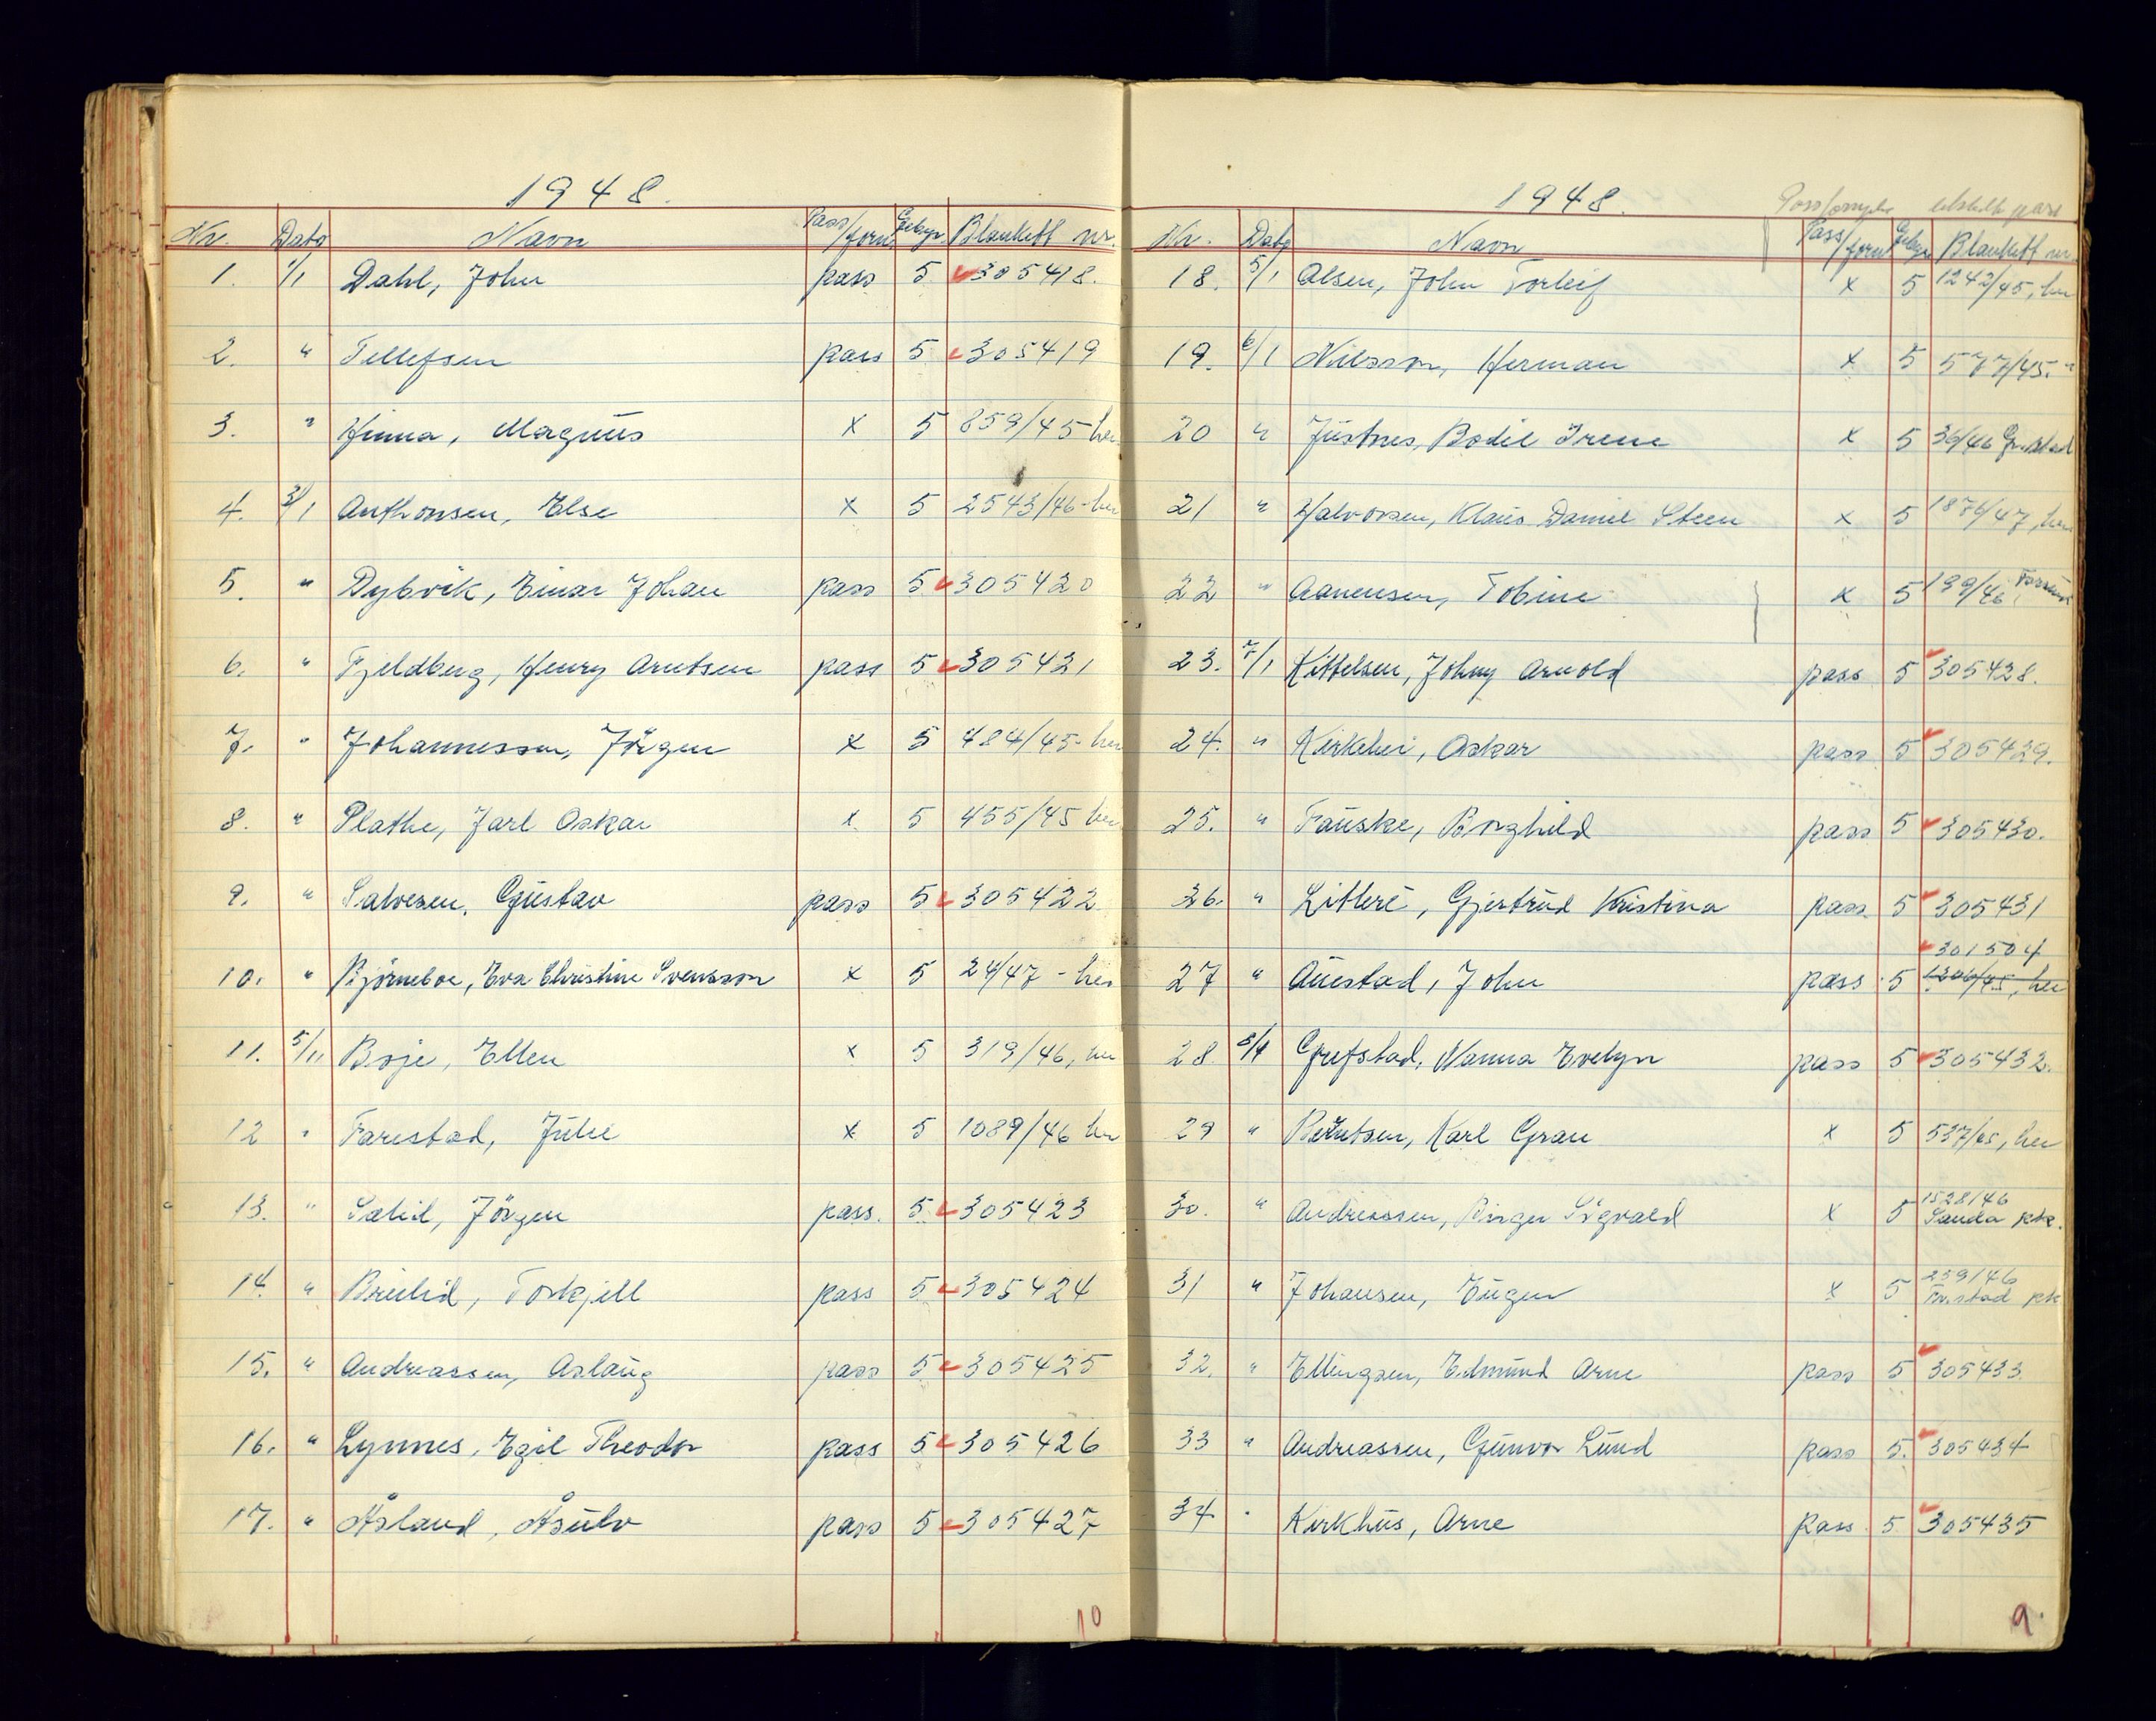 1948.
Nr. Dato Navn Pass/forn. Gebyr Blankett nr.
1. 1/1 Dahl, John pass 5 305418.
2. " Tellefsen pass 5 305419
3. " Hinna, Magnus x 5 859/45 her
4. 3/1 Anthonsen, Else x 5 2543/46 - her
5. " Dybvik, Einar Johan pass 5 305420
6. " Fjeldberg, Henry Arntsen pass 5 305421
7. " Johannessen, Jörgen x 5 484/45 - her
8. " Plathe, Jarl Oskar x 5 455/45 her
9. " Salvesen, Gustav pass 5 305422
10. " Bjørneboe, Eva Christine Svensson x 5 24/47 - her
11. 5/11 Boje, Ellen x 5 319/46, her
12 " Farestad, Julie x 5 1089/46 her
13. " Salid, Jörgen pass. 5 305423
14. " Breilid, Torkjell pass 5 305424
15. " Andreassen, Aslaug pass 5 305425
16. " Lynnes, Egil Theodor pass 5 305426
17. " Åsland, Åsulv pass 5 305427
10
1948.
utstedt pass
Nr. Dato Navn Pass/forn. Gebyr Blankett nr.
18. 5/1 Olsen, John Torleif x 5 1242/45, her
19. 6/1 Nilsson, Herman x 5 577/45. "
20 " Justnes, Bodil Irene x 5 36/46 Gr.stad
21 " Halvorsen, Klaus Daniel Steen x 5 1876/47, her
22 " Aanensen, Tobine x 5 199/46
23. 7/1 Kittelsen, Johny Arnold pass 5 305428.
24. " Kirkehei, Oskar pass 5 305429.
25. " Fauske, Borghild pass 5 305430.
26. " Littere, Gjertrud Kristina pass 5 305431
301504
27 " Austad, John pass 5 1306/45, her
28 8/1 Grefstad, Nanna Evelyn pass 5 305432.
29 " Berntsen, Karl Gran x 5 537/45, her
30. " Andreassen, Birger Sigvald x 5 1528/46
Sauda pk.
31 " Johansen, Eugen x 5 239/46
32. " Ellingsen, Edmund Arne pass 5 305433.
33 " Andreassen, Gunvor Lund pass 5. 305434
34 " Kirkhus, Arne pass 5 305435
9.